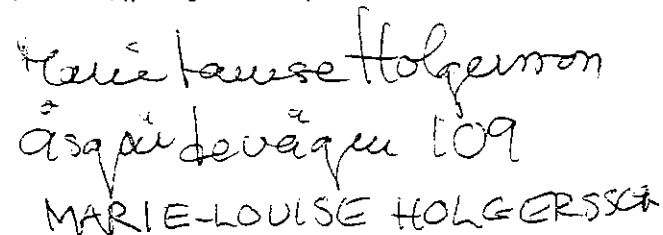 Marie Louise Holgersson
Åsgärdevägen 109
MARIE-LOUISE HOLGERSSON